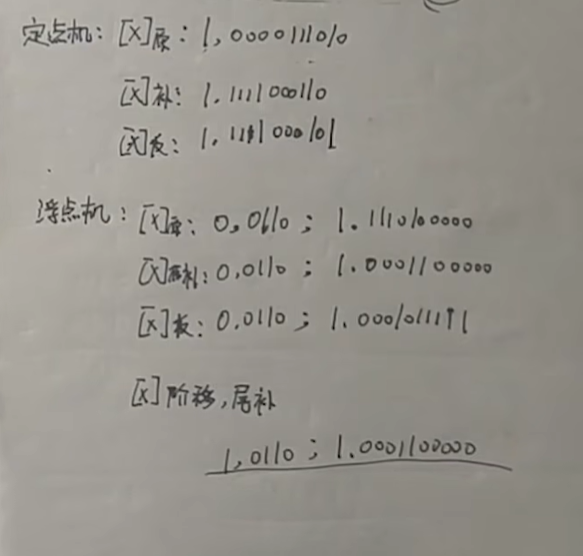 定点机：[X]原：1,0000111010
[X]补：1.111100110
[X]反：1.1111000101
浮点机：[X]原：0,0110；1.1110100000
[X]补：0,0110；1.0001100000
[X]反：0.0110；1.0001011111
[X]阶移,尾补
1,0110；1.0001100000